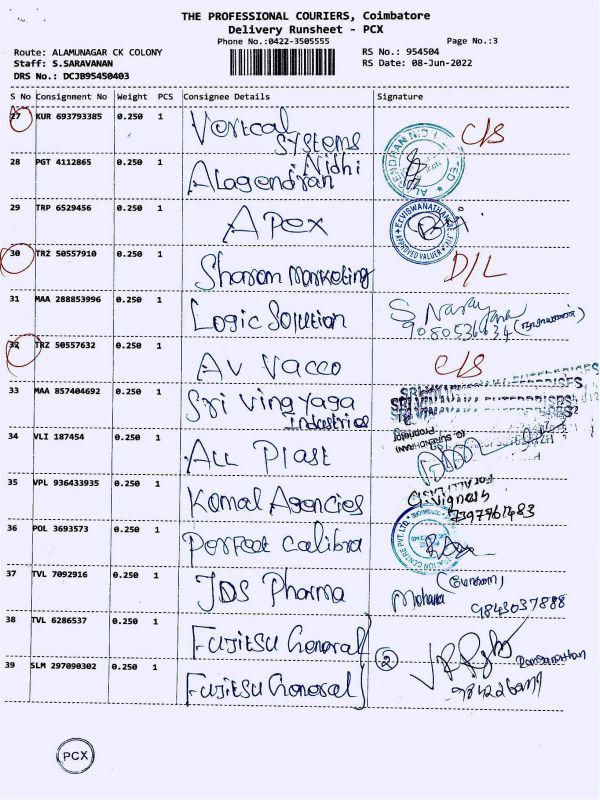 THE PROFESSIONAL COURIERS, Coimbatore
Delivery Runsheet - PCX
Phone No.:0422-3505555 Page No.:3
Route: ALAMUNAGAR CK COLONY RS No.: 954504
Staff: S.SARAVANAN RS Date: 08-Jun-2022
DRS No.: DCJB95450403
S No Consignment No Weight PCS Consignee Details Signature
27 KUR 693793385 0.250 1 Vertcal Systems C/S
28 PGT 4112865 0.250 1 Alagendiran Nidhi
29 TRP 6529456 0.250 1 Apex
30 TRZ 50557910 0.250 1 Sharam Marketing D/L
31 MAA 288853996 0.250 1 Logic Solution
32 TRZ 50557632 0.250 1 AV Vacco C/S
33 MAA 857404692 0.250 1 Sri Vinayaga Industries
34 VLI 187454 0.250 1 ALL Plast
35 VPL 936433935 0.250 1 Komal Agencies G.Vignesh
36 POL 3693573 0.250 1 Perfect Calibra
37 TVL 7092916 0.250 1 JDS Pharma Mohana 9843037888
38 TVL 6286537 0.250 1 Fujitsu General
39 SLM 297090302 0.250 1 Fujitsu General 2
PCX